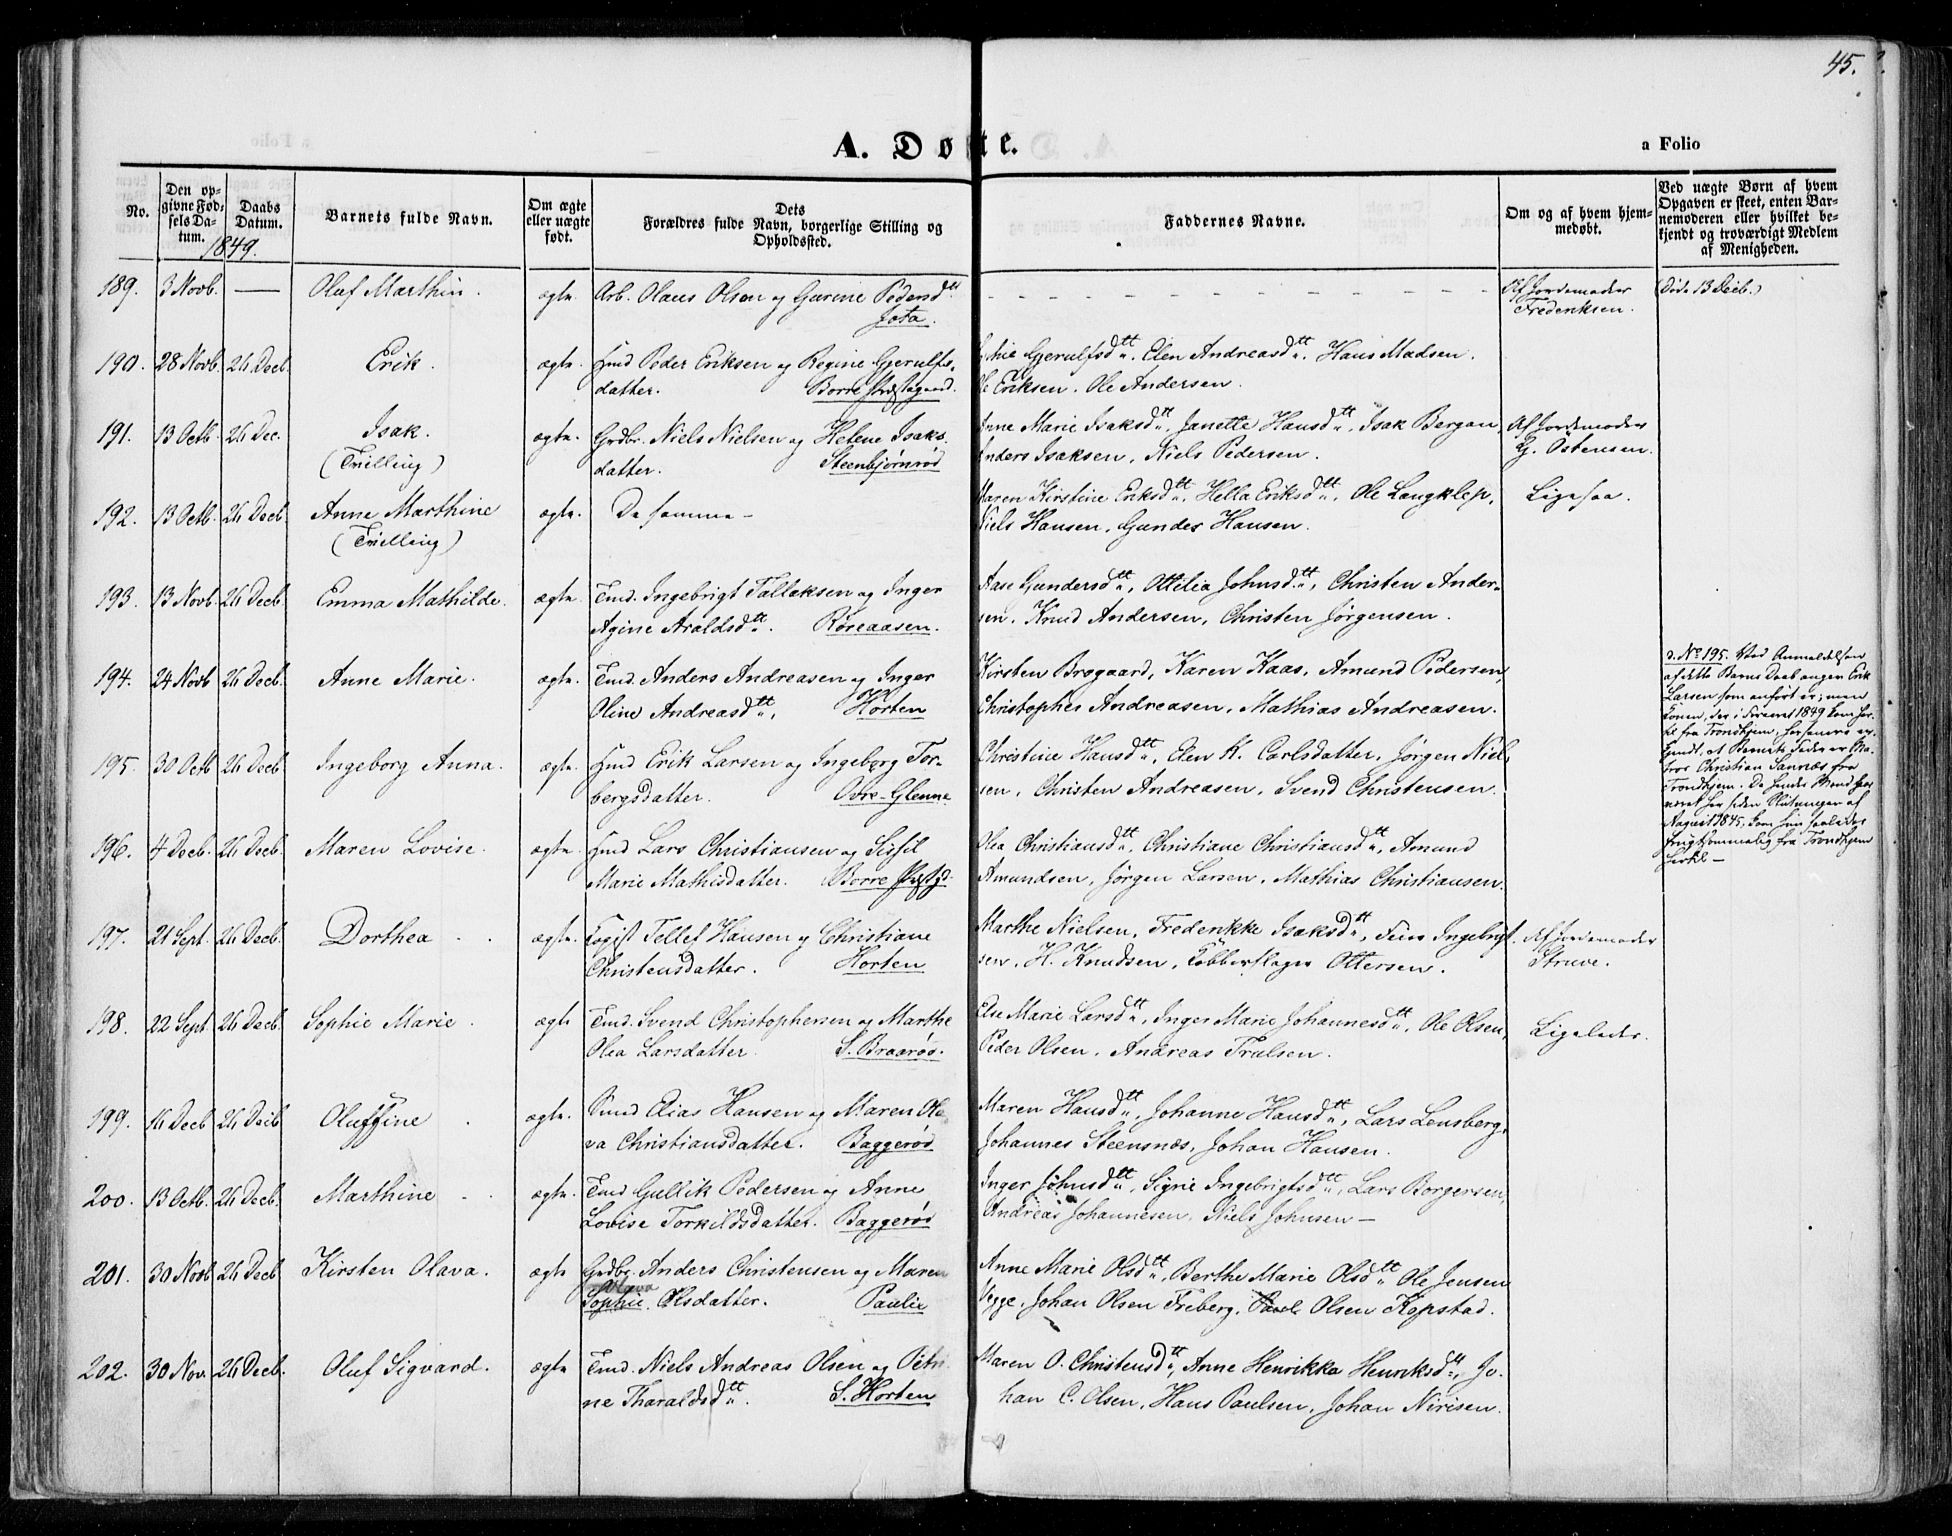 45.
A. Døbte.
a Folio
No.
Den opgivne Fødsels Datum.
Daabs Datum.
Barnets fulde Navn.
Om ægte eller uægte født.
Dets Forældres fulde Navn, borgerlige Stilling og Opholdssted.
Faddernes Navne.
Om og af hvem hjemmedøbt.
Ved uægte Børn af hvem Opgaven er skeet, enten Barnemoderen eller hvilket bekjendt og troværdigt Medlem af Menigheden.
1849.
189. 3 Novb. — Oluf Marthin. ægte. Arb. Olaus Olsen og Gurine Pedersdtt. Af Jordemoder (Døde 13 Decb.)
Jota. Frederiksen.
190. 28 Novb. 26 Decb. Erik. ægte. Hmd Peder Eriksen og Regine Gjerulfs- Gjerulfsdtt. Elen Andreasdtt. Hans Madsen.
datter. Borre Præstegaard. Ole Eriksen. Ole Andersen.
191. 13 Octb. 26 Dec. Isak. ægte. Grdbr. Niels Nielsen og Helene Isaks- Anne Marie Isaksdtt. Janette Hansdtt. Isak Bergan, Af Jordemoder
(Tvilling) datter. Steenbjørnrød Anders Isaksen, Niels Pedersen. G. Østensen.
192. 13 Octb. 26 Decb. Anne Marthine ægte. De samme — Maren Kirstine Eriksdtt. Hella Eriksdtt. Ole Langklep, Ligesaa.
(Tvilling) Niels Hansen, Gunder Hansen.
193. 13 Novb. 26 Decb. Emma Mathilde. ægte. Tmd. Ingebrigt Tallaksen og Inger Aase Gundersdtt, Ottilia Johnsdtt, Christen Ander-
Agine Araldsdtt. Røreaasen. sen. Knud Andersen, Christen Jørgensen.
194. 24 Novb 26 Decb. Anne Marie. ægte. Tmd. Anders Andreasen og Inger Kirsten Brogaard, Karen Kaas, Amund Pedersen,
Oline Andreasdtt. Horten Christopher Andreasen, Mathias Andreasen.
195. 30 Octb 26 Decb. Ingeborg Anna. ægte. Hmd Erik Larsen og Ingeborg Tor- Christine Hansdtt, Elen K. Carlsdatter, Jørgen Niel-
bergsdatter. Ovre-Glenne sen, Christen Andreasen, Svend Christensen.
No 195. Ved Anmeldelsen
af dette Barns Daab angav Erik
Larsen som anført er; men
Konen, der i Foraaret 1849 kom her-
til fra Trondhjem, har senere er-
kjendt, at Barnets Fader er Ma-
tros Christian Sannæs fra
Trondhjem. Da hendes Mand har
været her siden Slutningen af
August 1845, kom hun saaledes
frugtsommelig fra Trondhjem
hertil —
196. 4 Decb. 26 Decb. Maren Lovise. ægte. Hmd Lars Christiansen og Sissil Olea Christiansdtt, Christiane Christiansdtt, Amund
Marie Mathisdatter. Borre Præstgd. Amundsen, Jørgen Larsen, Mathias Christiansen.
197. 21 Sept. 26 Decb. Dorthea ægte. Logist Tellef Hansen og Christiane Marthe Nielsen, Frederikke Isaksdtt, Ingebrigt- Af Jordemoder
Christensdatter. Horten sen. H. Knudsen, Kobberslager Ottersen. Struve.
198. 22 Sept. 26 Decb. Sophie Marie. ægte Tmd. Svend Christophersen og Marthe Else Marie Larsdtt, Inger Marie Johannesdtt, Ole Olsen, Ligeledes.
Olea Larsdatter. S. Braarød. Peder Olsen, Andreas Trulsen.
199. 16 Decb 26 Decb Oluffine ægte. Smed Elias Hansen og Maren Ola- Maren Hansdtt, Johanne Hansdtt, Lars Lensberg,
va Christiansdatter. Baggerød Johannes Steensnæs, Johan Hansen.
200. 13 Octb. 26 Decb. Marthine ægte. Tmd Gullik Pedersen og Anne Inger Johnsdtt, Signe Ingebrigtsdtt, Lars Borgersen,
Lovise Torkildsdatter. Baggerød Andreas Johannesen, Niels Johnsen —
201. 30 Novb 26 Decb Kirsten Olava. ægte Grdbr. Anders Christensen og Maren Anne Marie Olsdtt, Berthe Marie Olsdtt Ole Jensen
Olava
Sophie. Olsdatter. Paulie Vegge, Johan Olsen Freberg, Paul Olsen Kopstad.
202. 30 Nov. 26 Decb. Oluf Sigvard. ægte Tmd. Niels Andreas Olsen og Petri- Maren O. Christensdtt, Anne Henrikka Henriksdtt, Jo-
ne Tharaldsdtt. S. Horten han C. Olsen, Hans Paulsen, Johan Nirisen.